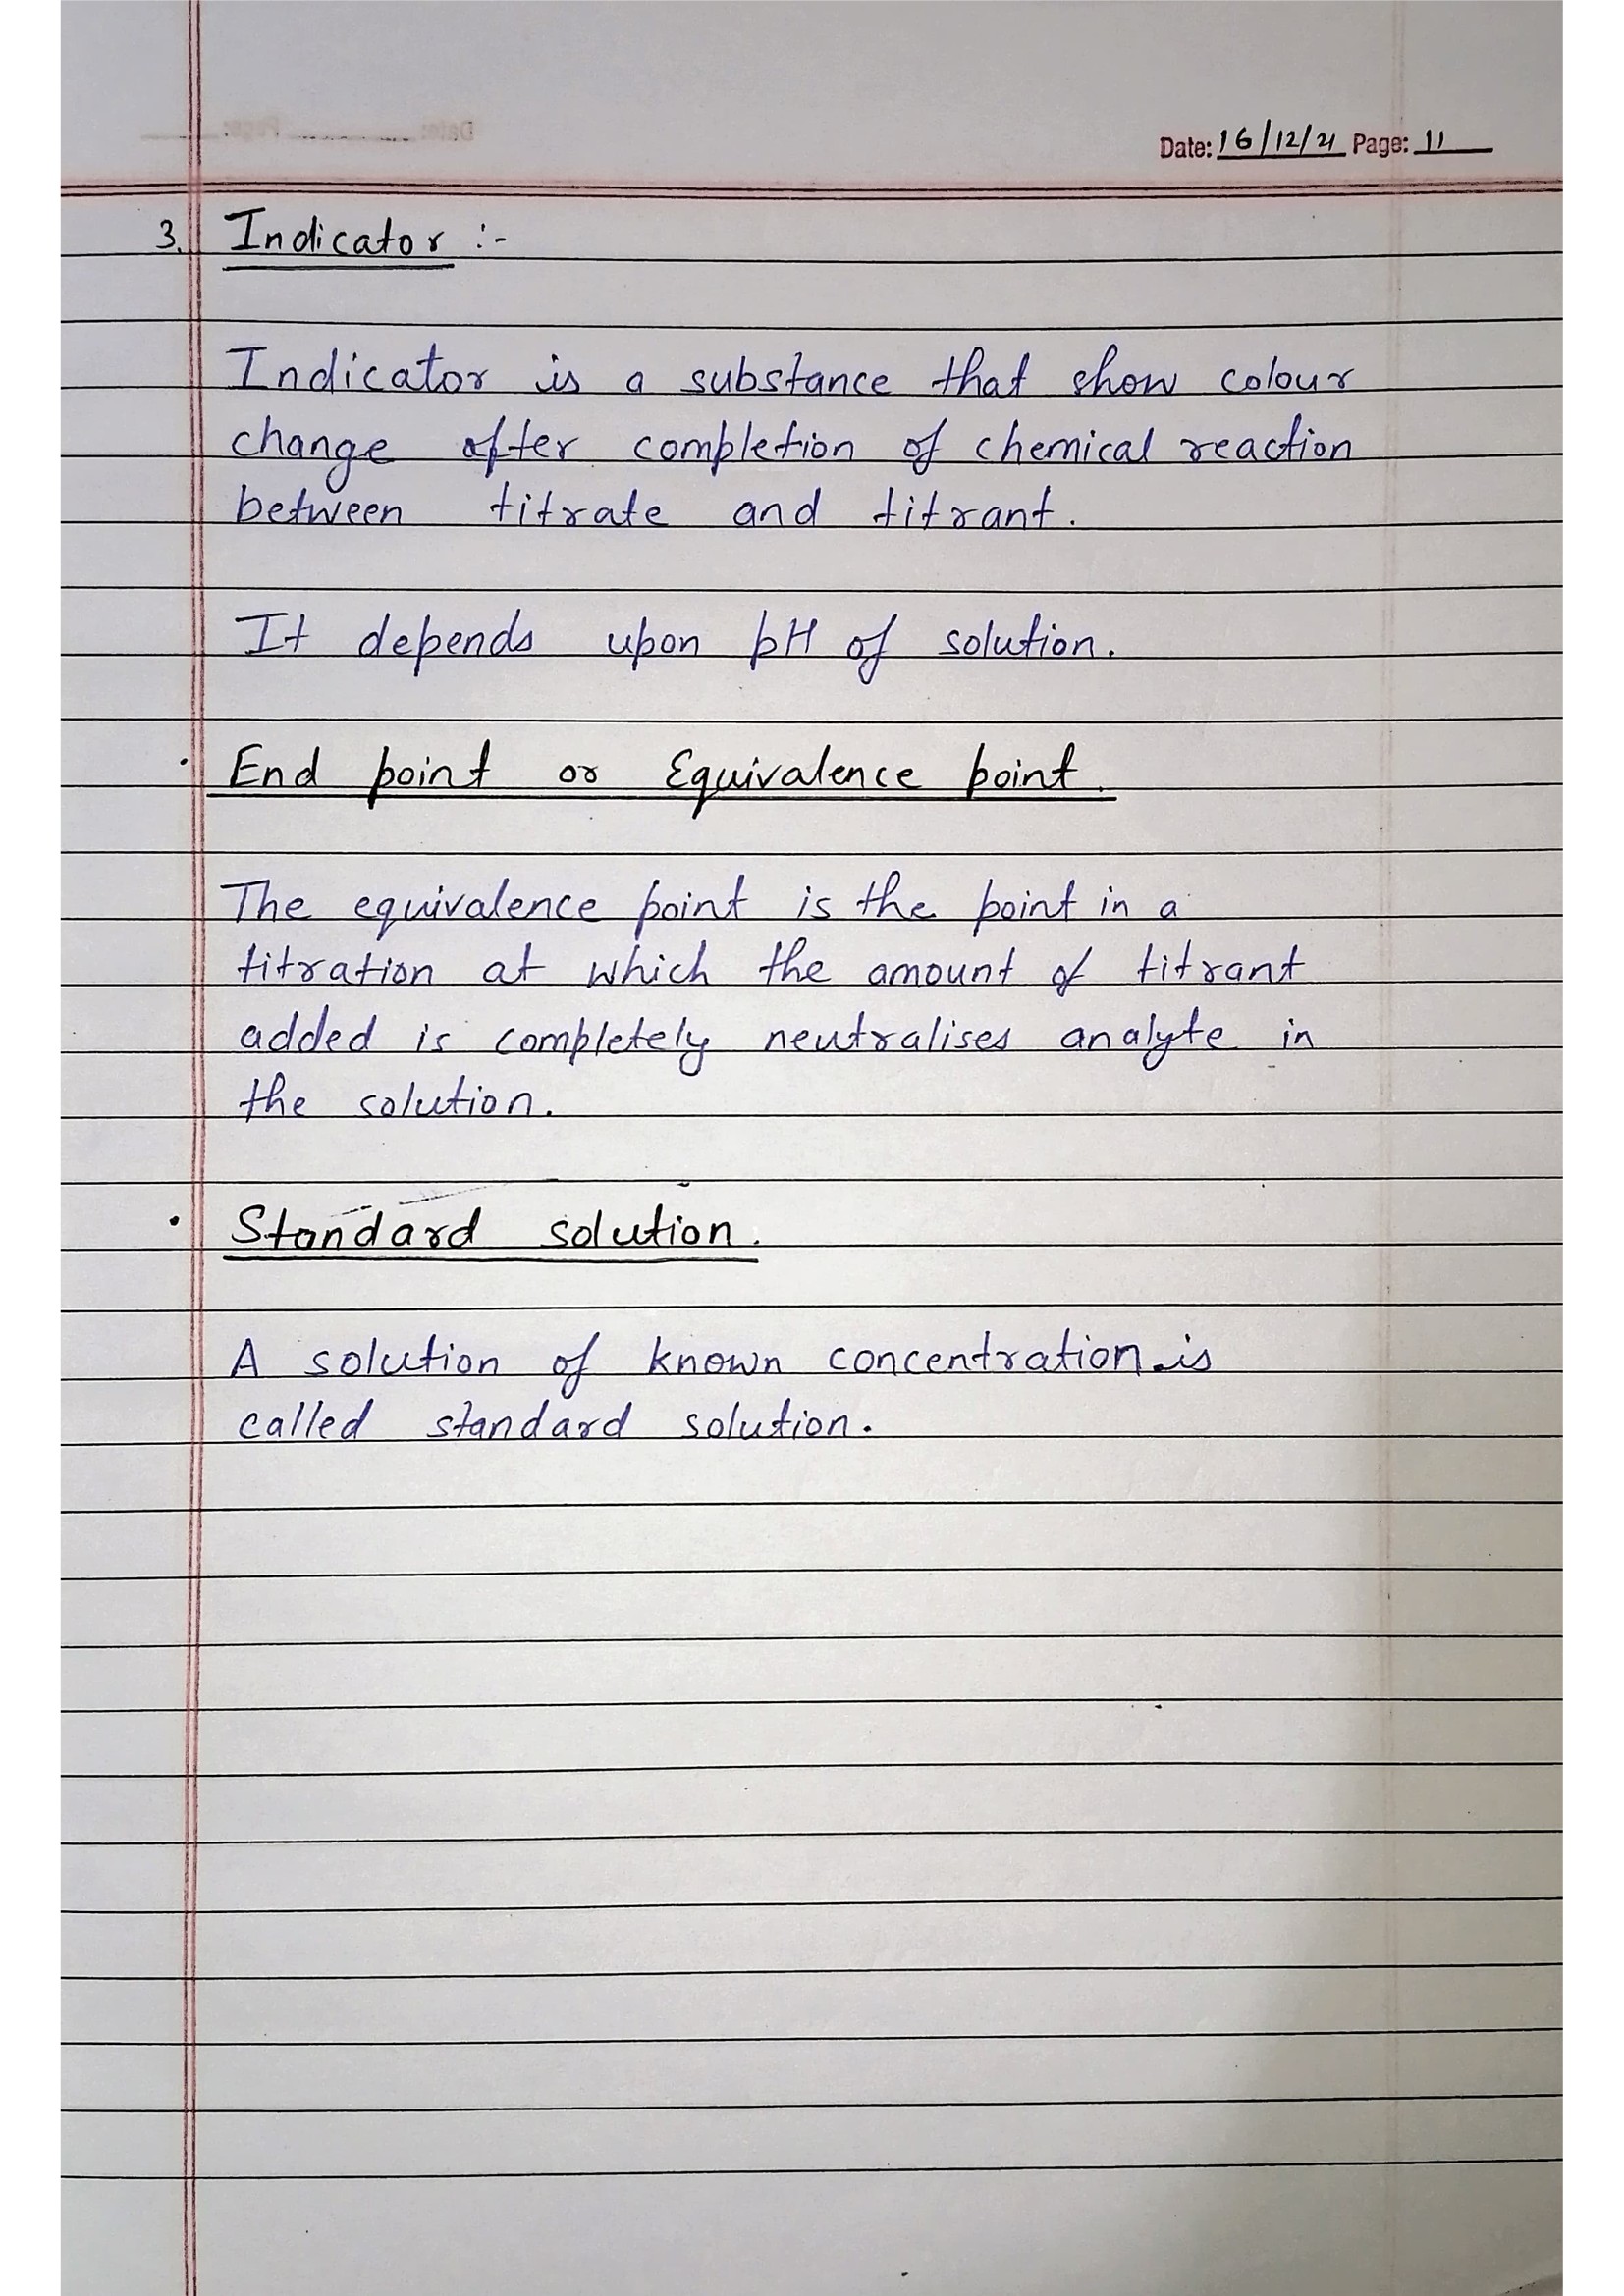 Date: 16/12/21 Page: 11
3. Indicator :-
Indicator is a substance that show colour
change after completion of chemical reaction
between titrate and titrant.
It depends upon pH of solution.
· End point or Equivalence point.
The equivalence point is the point in a
titration at which the amount of titrant
added is completely neutralises analyte in
the solution.
· Standard solution.
A solution of known concentration is
called standard solution.